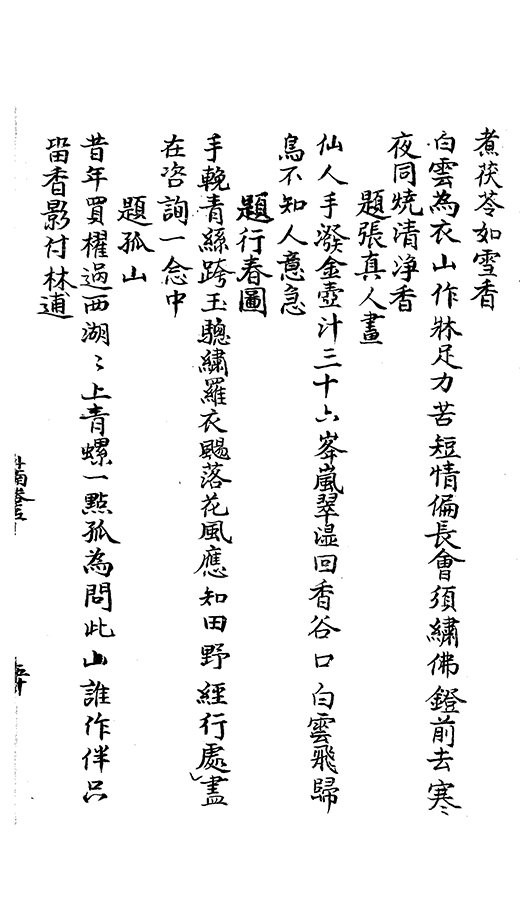 煮茯苓如雪香
白雲為衣山作牀足力苦短情偏長會須繡佛鐙前去寒
夜同燒清淨香
題張真人畫
仙人手潑金壺汁三十六峯嵐翠湿回香谷口白雲飛歸
鳥不知人意急
題行春圖
手輓青絲跨玉驄繡羅衣颺落花風應知田野經行處盡
在咨詢一念中
題孤山
昔年買櫂過西湖〻上青螺一點孤為問此山誰作伴只
畱香影付林逋